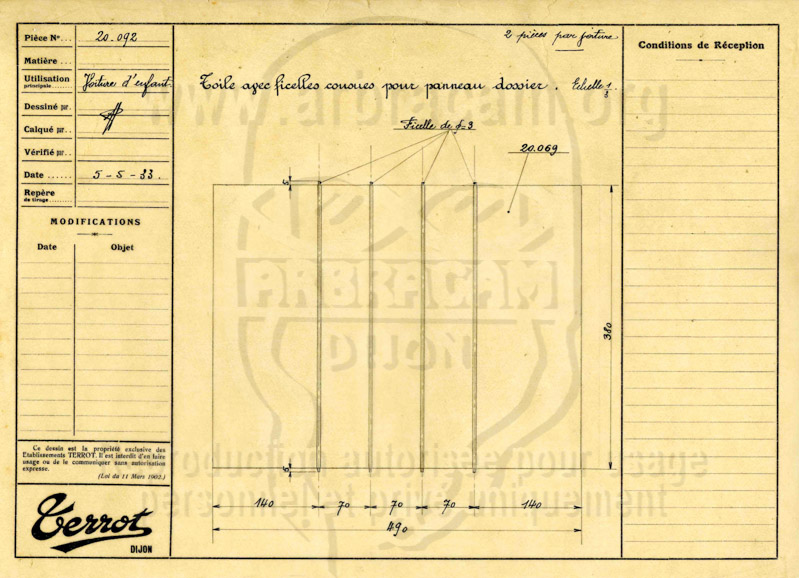 Pièce Nº... 20.092
Matière...
Utilisation principale...... Voiture d'enfant
Dessiné par.
Calqué par..
Vérifié par..
Date ...... 5-5-33.
Repère de tirage........
MODIFICATIONS
Date Objet
Ce dessin est la propriété exclusive des
Etablissements TERROT. Il est interdit d'en faire
usage ou de le communiquer sans autorisation
expresse.
(Loi du 11 Mars 1902.)
Terrot
DIJON
2 pièces par voiture
Toile avec ficelles cousues pour panneau dossier. Echelle 1/3.
Ficelle de ϕ=3
20.069
5
380
5
140 70 70 70 140
490
Conditions de Réception
www.arbracam.org
ARBRACAM
DIJON
Reproduction autorisée pour usage
personnel et privé uniquement